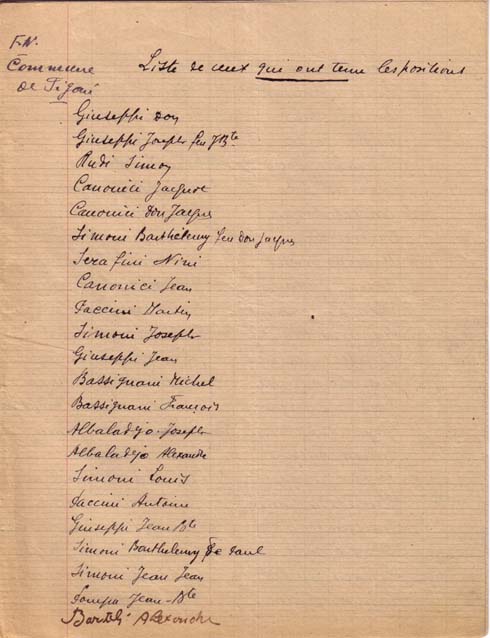 F.N.
Commune
de Figari
Liste de ceux qui ont tenu les positions
Giuseppi Don
Giuseppi Joseph feu J Bte
Rudi Simon
Canonici Jacques
Canonici Don Jacques
Simoni Barthélemy feu Don Jacques
Serafini Nini
Canonici Jean
Faccini Martin
Simoni Joseph
Giuseppi Jean
Bassignani Michel
Bassignani François
Albaladejo Joseph
Albaladejo Alexandre
Simoni Louis
Faccini Antoine
Giuseppi Jean Bte
Simoni Barthélemy de Paul
Simoni Jean Jean
Jean-Bte
Bartoli Alexandre